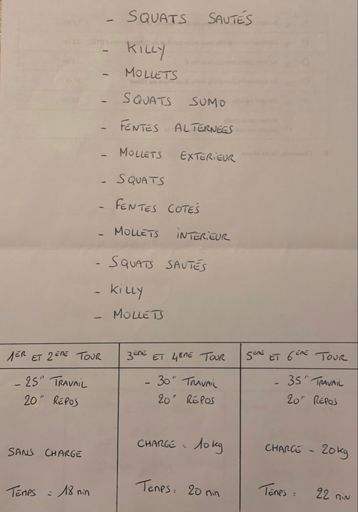 - SQUATS SAUTÉS
- KILLY
- MOLLETS
- SQUATS SUMO
- FENTES ALTERNEES
- MOLLETS EXTERIEUR
- SQUATS
- FENTES COTÉS
- MOLLETS INTERIEUR
- SQUATS SAUTÉS
- KILLY
- MOLLETS
1ER ET 2EME TOUR
- 25" TRAVAIL
20" REPOS
SANS CHARGE
TEMPS = 18 min
3EME ET 4EME TOUR
- 30" TRAVAIL
20" REPOS
CHARGE = 10kg
TEMPS = 20 min
5EME ET 6EME TOUR
- 35" TRAVAIL
20" REPOS
CHARGE = 20kg
TEMPS = 22 min